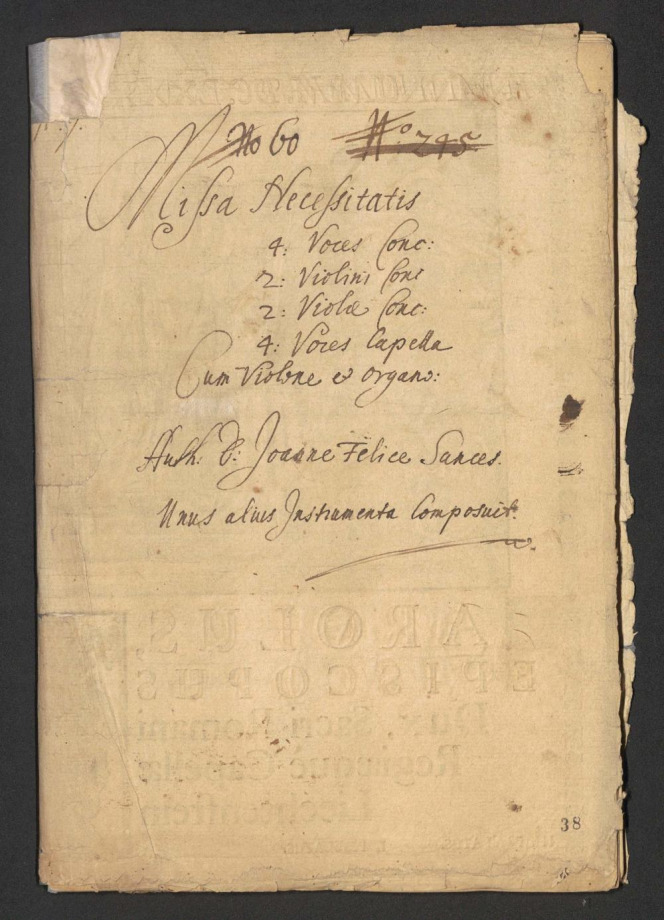 No 60 N.º 245.
Missa Necessitatis
4: Voces Conc:
2: Violini Conc
2: Violæ Conc:
4: Voces Capella
Cum Violone et organo:
Auth: D: Joanne Felice Sances.
Unus alius Instrumenta Composuit.
AROLUS,
EPISCOPUS
Dux, Sacri Romani
Regiæque Capellæ
Liechtenstein
38